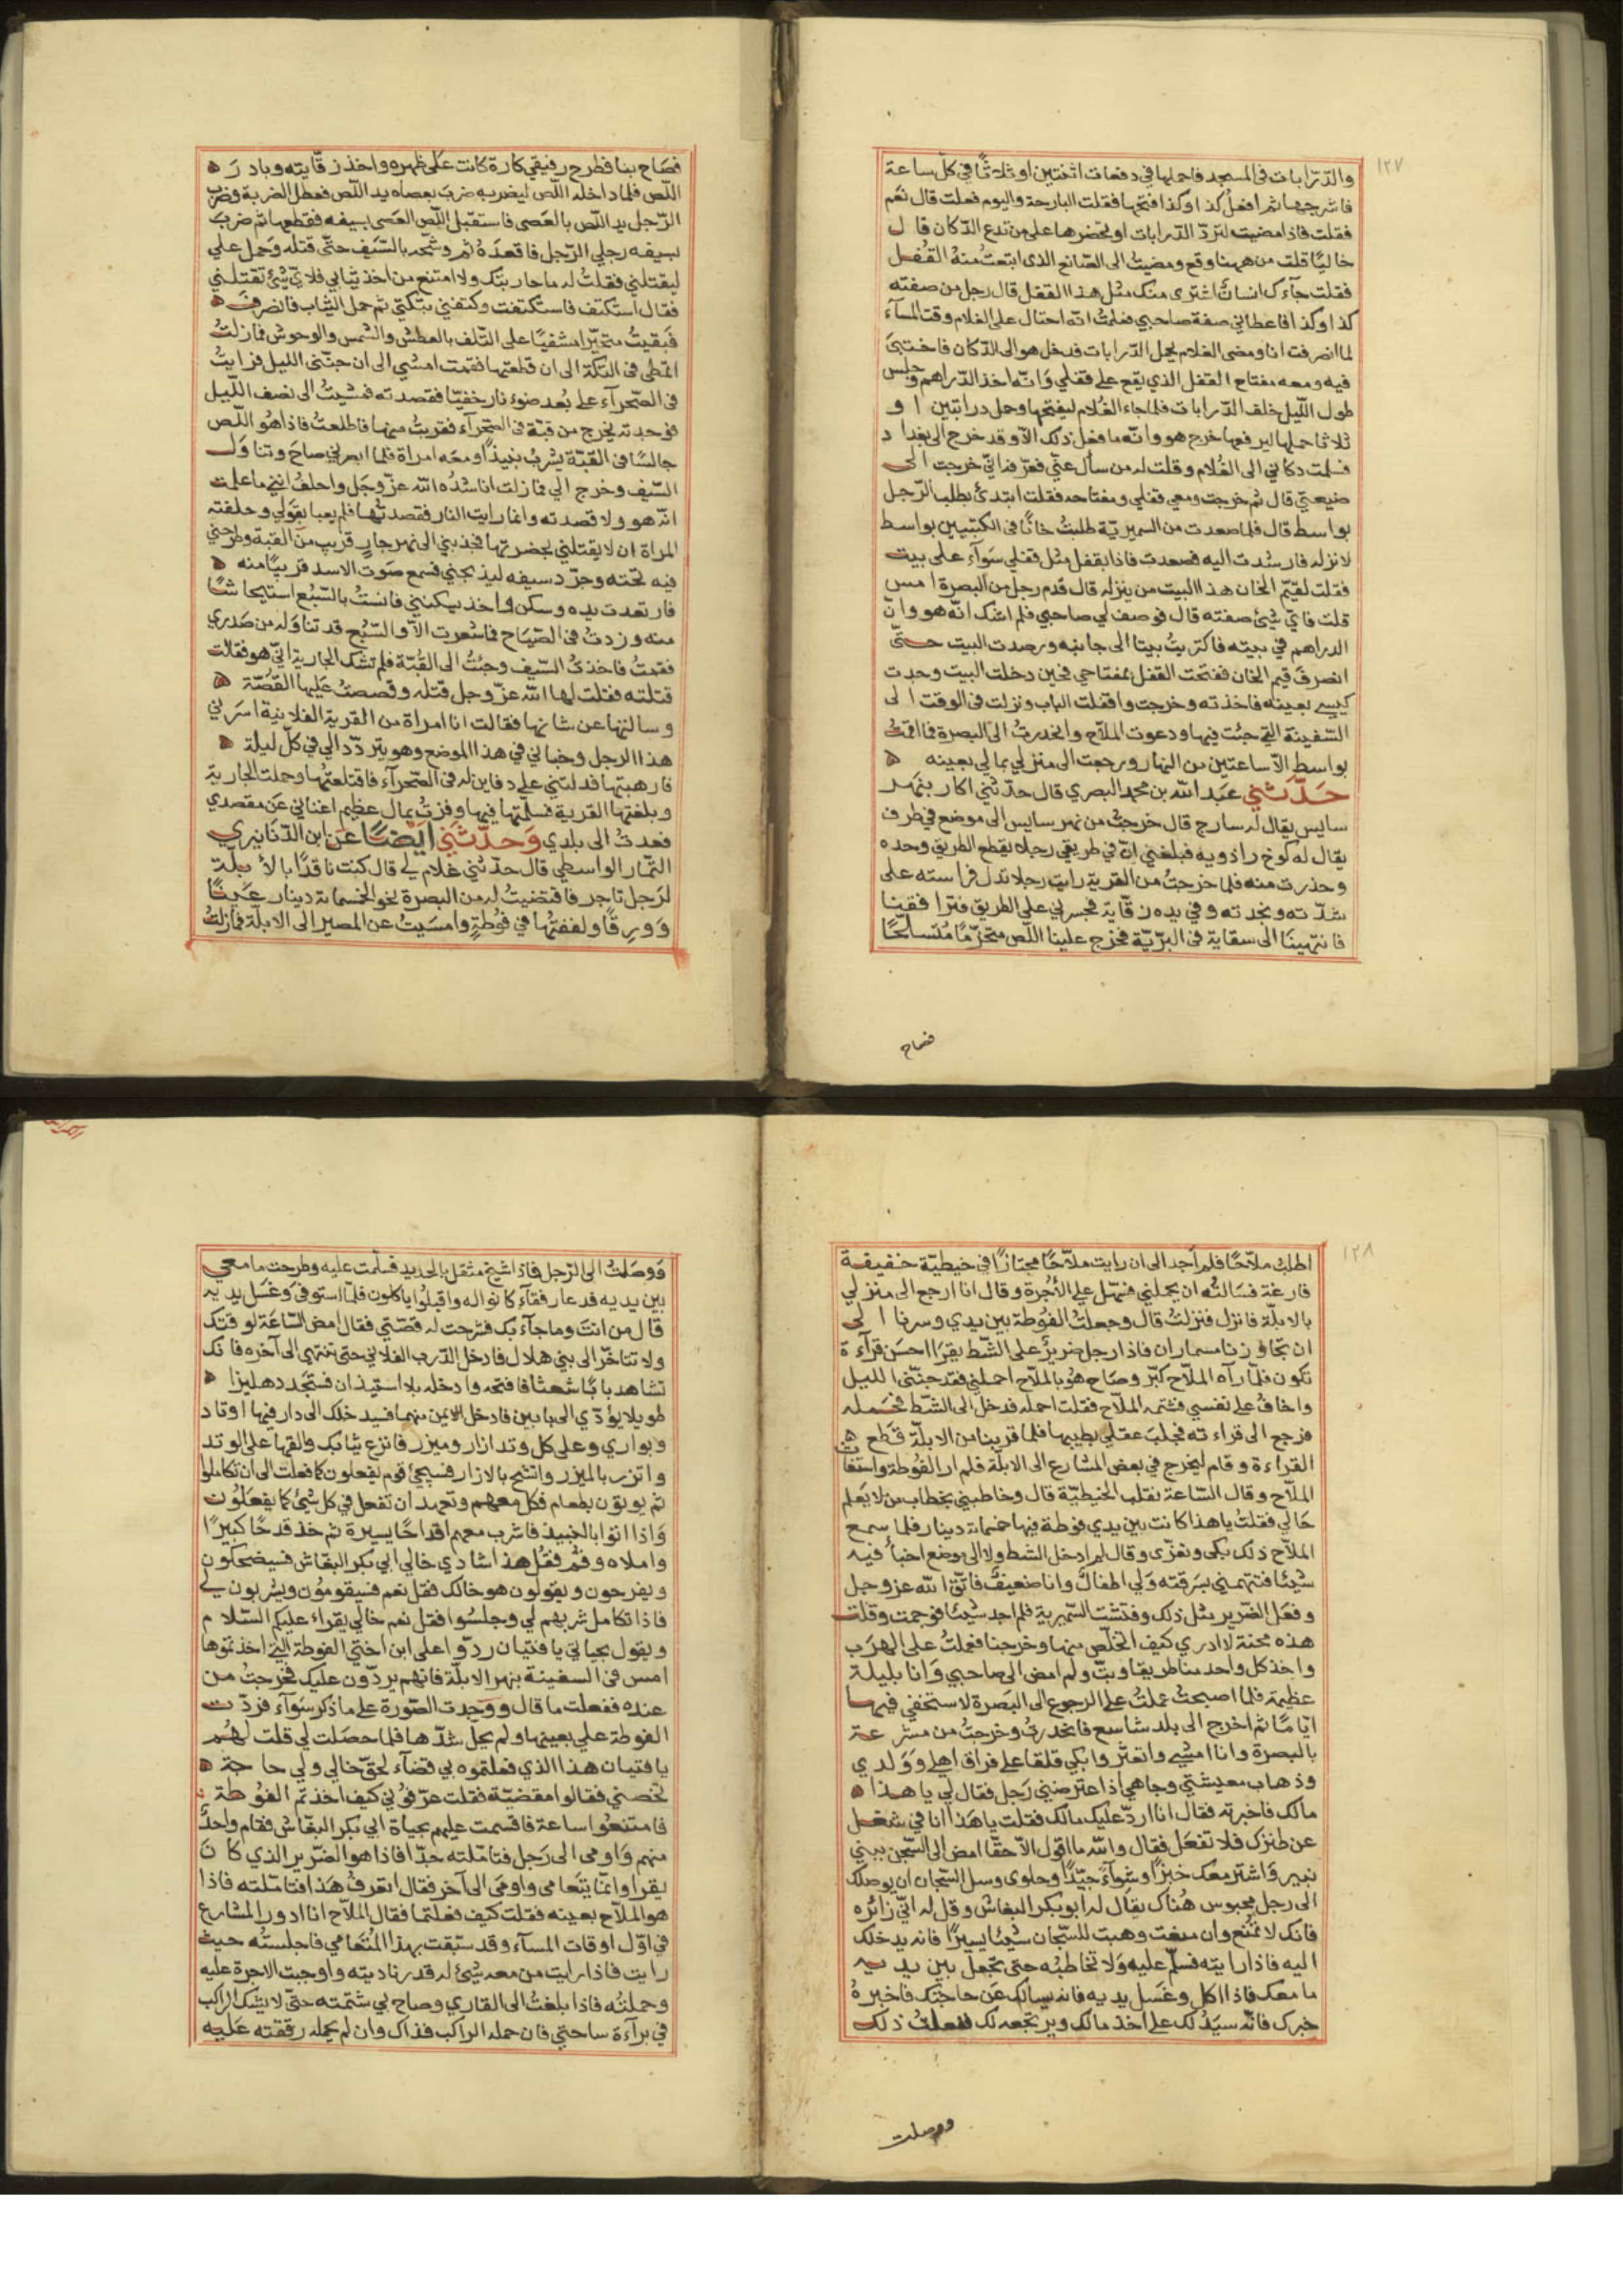 ١٢٧
والدّرابات في المسجد فاحملها في دفعات اثنتين او ثلاثًا في كل ساعة
فاشرجها ثم افعل كذا وكذا افتحها فقلت البارحة واليوم فعلت قال نعم
فقلت فاذا مضيت لترد الدرابات او تحضرها على من تدع الدكان قال
خاليًا قلت من ههنا وقع ومضيت الى الصانع الذى ابتعت منه القفل
فقلت جآءك انسان اشترى منك مثل هذا القفل قال رجل من صفته
كذا وكذا فاعطاني صفة صاحبي فعلمت انّه احتال على الغلام وقت المسآء
لما انصرفت انا ومضى الغلام يحمل الدرابات فدخل هو الى الدكان فاختبئ
فيه ومعه مفتاح القفل الذي يقع على قفلي وانّه اخذ الدراهم وجلس
طول الليل خلف الدرابات فلما جاء الغلام ليفتحها وحمل درابتين او
ثلاثا حملها ليرفعها خرج هو وانه ما فعل ذلك الا وقد خرج الى بغداد
فسلمت دكاني الى الغلام وقلت له من سأل عنّي فعرفه اني خرجت الى
ضيعتي قال ثم خرجت ومعي قفلي ومفتاحه فقلت ابتدئ بطلب الرجل
بواسط قال فلما صعدت من السميرية طلبت خانًا في الكتبيين بواسط
لانزله فارشدت اليه فصعدت فاذا بقفل مثل قفلي سوآء على بيت
فقلت لقيّم الخان هذا البيت من ينزله قال قدم رجل من البصرة امس
قلت فاي شيئ صفته قال فوصف لي صاحبي فلم اشك انّه هو وان
الدراهم في بيته فاكتريت بيتا الى جانبه ورصدت البيت حتّى
انصرف قيم الخان ففتحت القفل بمفتاحي فحين دخلت البيت وجدت
كيسي بعينه فاخذته وخرجت واقفلت الباب ونزلت في الوقت الى
السفينة التي جئت فيها ودعوت الملاح وانحدرت الى البصرة فما اقمت
بواسط الا ساعتين من النهار ورجعت الى منزلي بمالي بعينه ه
حدّثني عبد الله بن محمد البصري قال حدثني اكار بنهر
سايس يقال له سارج قال خرجت من نهر سايس الى موضع في طرف
يقال له كوخ راذويه فبلغني ان في طريقي رجلا يقطع الطريق وحده
وحذرت منه فلما خرجت من القرية رايت رجلا تدل فراسته على
شدته ونجدته وفي يده زقاية فجسرني على الطريق فترافقنا
فانتهينا الى سقاية في البرّيّة فخرج علينا اللص متحزمًا متسلحًا
فصاح
فصاح بنا فطرح رفيقي كارة كانت على ظهره واخذ زقايته وبادر ه
اللص فلما داخله اللص ليضربه ضرب بعصاه يد اللص فعطل الضربة وضرب
الرجل يد اللص بالعصى فاستقبل اللص العصى بسيفه فقطعها ثم ضرب
بسيفه رجلي الرجل فاقعده ثم وشحه بالسيف حتى قتله وحمل علي
ليقتلني فقلت له ما حاربتك ولا امتنع من اخذ ثيابي فلاي شيئ تقتلني
فقال استكتف فاستكتفت وكتفني بتكتي ثم حمل الثياب فانصرف ه
فبقيت متحيرا مشفيًا على التلف بالعطش والشمس والوحوش فمازلت
اتمطى في التكة الى ان قطعتها فقمت امشي الى ان جنّني الليل فرايت
في الصحرآء على بعد ضوء نار خفيّا فقصدته فمشيت الى نصف الليل
فوجدته يخرج من قبة في الصحرآء فقربت منها فاطلعت فاذا هو اللص
جالسًا في القبة يشرب نبيذًا ومعه امراة فلما ابصرني صاح وتناول
السيف وخرج الي فمازلت اناشده الله عزّ وجل واحلف انني ما علمت
انه هو ولا قصدته وانما رايت النار فقصدتها فلم يعبا بقولي وحلفته
المراة ان لا يقتلني بحضرتها فجذبني الى نهر جار قريب من القبة وطرحني
فيه تحته وجرّد سيفه ليذبحني فسمع صوت الاسد قريبًا منه ه
فارتعدت يده وسكن واخذ يسكتني فانست بالسبع استيحاشًا
منه وزدت في الصياح فما شعرت الا والسبع قد تناوله من صدري
فقمت فاخذت السيف وجئت الى القبة فلم تشك الجارية انّي هو فقالت
قتلته فقلت لها الله عزّ وجل قتله وقصصت عليها القصّة ه
وسالتها عن شانها فقالت انا امراة من القرية الفلانية اسرني
هذا الرجل وخباني في هذا الموضع وهو يتردد الي في كل ليلة ه
فارهبتها فدلتني على دفاين له في الصحرآء فاقتلعتها وحملت الجارية
وبلغتها القرية فسلمتها فيها وفزت بمال عظيم اغناني عن مقصدي
فعدت الى بلدي وحدّثني ايضًا عن ابن الدنانيري
التمار الواسطي قال حدثني غلام لي قال كنت ناقدًا بالأبلة
لرجل تاجر فاقتضيت له من البصرة نحو الخمسمائة دينار عينًا
وورقًا ولففتها في فوطة وامسيت عن المصير الى الابلة فمازلت
١٢٨
اطلب ملاحًا فلم أجد الى ان رايت ملاحًا مجتازًا في خيطيّة خفيفة
فارغة فسالته ان يحملني فسهّل علي الأجرة وقال انا ارجع الى منزلي
بالابلة فانزل فنزلت قال وجعلت الفوطة بين يدي وسرنا الى
ان تجاوزنا مسماران فاذا رجل ضرير على الشط يقرا احسن قرآءة
تكون فلما رآه الملاح كبّر وصاح هو بالملاح احملني فقد جنّني الليل
واخاف على نفسي فشتمه الملاح فقلت احمله فدخل الى الشط فحمله
فرجع الى قراءته فخلب عقلي بطيبها فلما قربنا من الابلة قطع
القراءة وقام ليخرج في بعض المشارع الى الابلة فلم ار الفوطة واستغاث
الملاح وقال الساعة تقلب الخيطيّة قال وخاطبني بخطاب من لا يعلم
حالي فقلت يا هذا كانت بين يدي فوطة فيها خمسمائة دينار فلما سمع
الملاح ذلك بكى وتعرّى وقال لم ادخل الشط ولا الى موضع اخبأ فيه
شيئًا فتتهمني بسرقته ولي اطفال وانا ضعيف فاتق الله عز وجل
وفعل الضرير مثل ذلك وفتشت السميرية فلم اجد شيئًا فوجمت وقلت
هذه محنة لا ادري كيف اتخلص منها وخرجنا فعملت على الهرب
واخذ كل واحد منا طريقا وبتّ ولم امض الى صاحبي وانا بليلة
عظيمة فلما اصبحت عملت على الرجوع الى البصرة لاستخفي فيها
ايامًا ثم اخرج الى بلد شاسع فانحدرت وخرجت من مشرعة
بالبصرة وانا امشي واتعثّر وابكي قلقا على فراق اهلي وولدي
وذهاب معيشتي وجاهي اذ اعترضني رجل فقال لي يا هذا ه
مالك فاخبرته فقال انا اردّ عليك مالك فقلت يا هذا انا في شغل
عن طنزك فلا تفعل فقال والله ما اقول الا حقا امض الى السجن ببني
نمير واشتر معك خبزًا وشوآءً جيّدًا وحلوى وسل السجان ان يوصلك
الى رجل محبوس هناك يقال له ابو بكر النقاش وقل له انّي زائره
فانك لا تمنع وان منعت وهبت للسجان شيئًا يسيرًا فانه يدخلك
اليه فاذا رايته فسلّم عليه ولا تخاطبه حتى تجعل بين يديه
ما معك فاذا اكل وغسل يديه فانه يسالك عن حاجتك فاخبره
خبرك فانه سيدلك على اخذ مالك ويرتجعه لك ففعلت ذلك
ووصلت
ووصلت الى الرجل فاذا شيخ مثقل بالحديد فسلمت عليه وطرحت ما معي
بين يديه فدعا رفقآء كانوا له واقبلوا ياكلون فلما استوفى وغسل يديه
قال من انت وما جآء بك فشرحت له قصتي فقال امض الساعة لوقتك
ولا تتاخر الى بني هلال فادخل الدرب الفلاني حتى تنتهي الى آخره فانك
تشاهد بابًا شعثًا فافتحه وادخله بلا استيذان فستجد دهليزا ه
طويلا يؤدّي الى بابين فادخل الايمن منهما فسيدخلك الى دار فيها اوتاد
وبواري وعلى كل وتد ازار وميزر فانزع ثيابك والقها على الوتد
واتزر بالميزر واتشح بالازار فسيجئ قوم يفعلون كما فعلت الى ان تكاملوا
ثم يوتون بطعام فكل معهم وتعمد ان تفعل في كل شيئ كما يفعلون
واذا اتوا بالنبيذ فاشرب معهم اقداحًا يسيرة ثم خذ قدحًا كبيرًا
واملاه وقم فقل هذا شادي خالي ابي بكر النقاش فسيضحكون
ويفرحون ويقولون هو خالك فقل نعم فسيقومون ويشربون لي
فاذا تكامل شربهم لي وجلسوا فقل نعم خالي يقراء عليكم السلام
ويقول بحياتي يا فتيان ردّوا على ابن اختي الفوطة التي اخذتموها
امس في السفينة بنهر الابلة فانهم يردّون عليك فخرجت من
عنده ففعلت ما قال ووجدت الصورة على ما ذكر سوآء فردّت
الفوطة علي بعينها ولم يحل شدّها فلما حصلت لي قلت لهم
يا فتيان هذا الذي فعلتموه بي قضآء لحق خالي ولي حاجة ه
تخصني فقالوا مقضيّة فقلت عرّفوني كيف اخذتم الفوطة
فامتنعوا ساعة فاقسمت عليهم بحياة ابي بكر النقاش فقام واحد
منهم واومى الى رجل فتاملته جدّا فاذا هو الضرير الذي كان
يقرا وانما يتعامى واومى الى آخر فقال اتعرف هذا فتاملته فاذا
هو الملاح بعينه فقلت كيف فعلتما فقال الملاح انا ادور المشارع
في اوّل اوقات المسآء وقد سبقت بهذا المتعامي فاجلسته حيث
رايت فاذا رايت من معه شيئ له قدر ناديته واوجبت الاجرة عليه
وحملته فاذا بلغت الى القاري وصاح بي شتمته حتى لا يشك الراكب
في برآءة ساحتي فان حمله الراكب فذاك وان لم يحمله رققته عليه